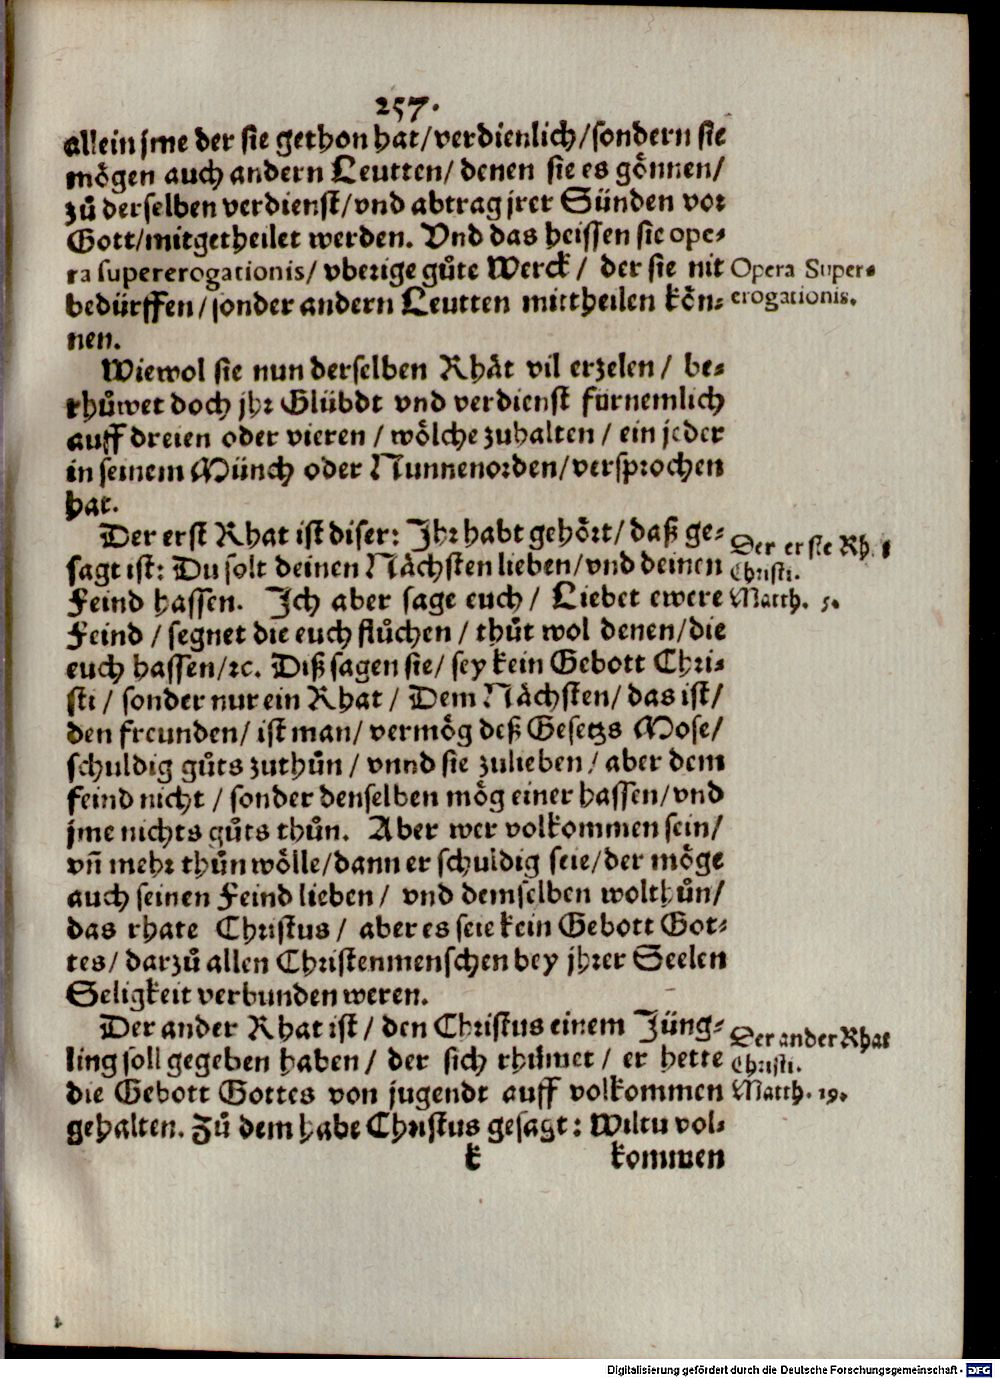 257.
allein jme der sie gethon hat/verdienlich/sondern sie
mögen auch andern Leutten/ denen sie es gönnen/
zů derselben verdienst/vnd abtrag jrer Sünden vor
Gott/mitgetheilet werden. Vnd das heissen sie ope-
ra supererogationis/ vberige gůte Werck/ der sie nit
bedürffen/sonder andern Leutten mittheilen kön-
nen.
Opera Super-
erogationis.
Wiewol sie nun derselben Rhät vil erzelen/ be-
rhůwet doch jhr Glübdt vnd verdienst fürnemlich
auff dreien oder vieren/ wölche zuhalten/ ein jeder
in seinem Münch oder Nunnenorden/versprochen
hat.
Der erst Rhat ist diser: Ihr habt gehört/ daß ge-
sagt ist: Du solt deinen Nächsten lieben/vnd deinen
Feind hassen. Ich aber sage euch/ Liebet ewere
Feind/ segnet die euch flůchen/ thůt wol denen/die
euch hassen/ꝛc. Diß sagen sie/ sey kein Gebott Chri-
sti/ sonder nur ein Rhat/ Dem Nächsten/ das ist/
den freunden/ ist man/ vermög deß Gesetzs Mose/
schuldig gůts zuthůn/ vnnd sie zulieben/ aber dem
feind nicht/ sonder denselben mög einer hassen/vnd
jme nichts gůts thůn. Aber wer volkommen sein/
vñ mehr thůn wölle/dann er schuldig seie/der möge
auch seinen Feind lieben/ vnd demselben wolthůn/
das rhate Christus/ aber es seie kein Gebott Got-
tes/ darzů allen Christenmenschen bey jhrer Seelen
Seligkeit verbunden weren.
Der erste Rh.t
Christi.
Matth. 5.
Der ander Rhat ist/ den Christus einem Jüng-
ling soll gegeben haben/ der sich rhůmet/ er hette
die Gebott Gottes von jugendt auff volkommen
gehalten. Zů dem habe Christus gesagt: Wiltu vol-
Der ander Rhat
Christi.
Matth. 19.
k kommen
Digitalisierung gefördert durch die Deutsche Forschungsgemeinschaft - DFG